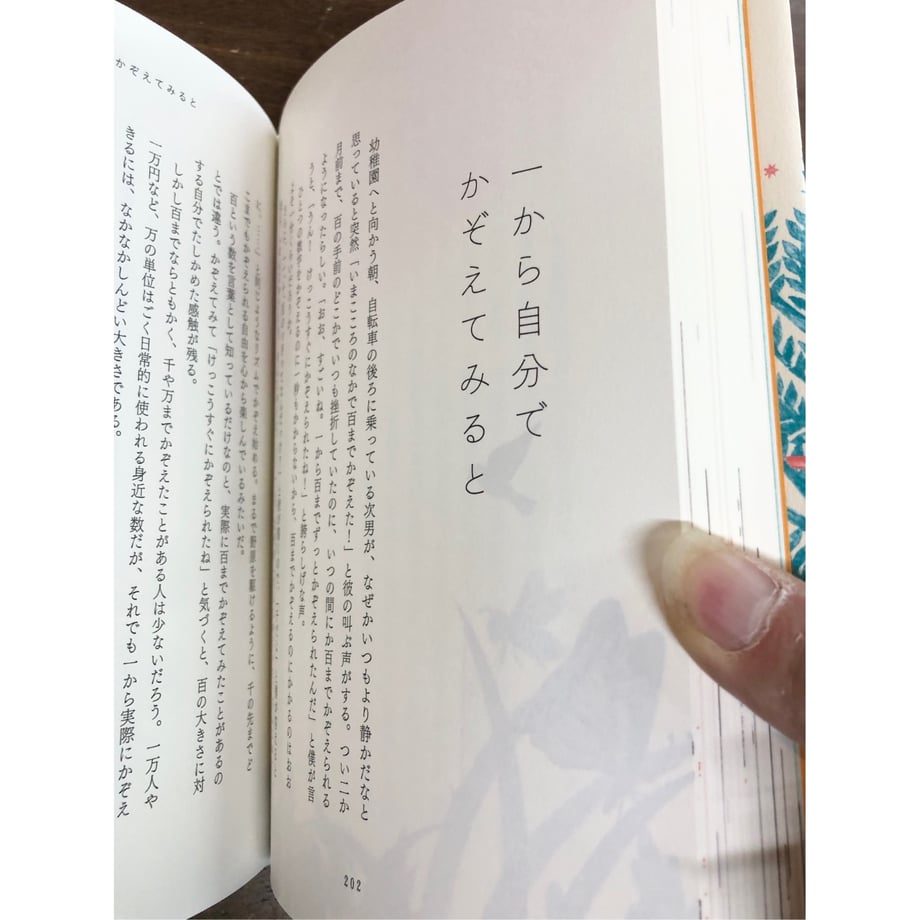 一から自分で
かぞえてみると
幼稚園へと向かう朝、自転車の後ろに乗っている次男が、なぜかいつもより静かだなと
思っていると突然「いまこころのなかで百までかぞえた！」と彼の叫ぶ声がする。つい二か
月前まで、百の手前のどこかでいつも挫折していたのに、いつの間にか百までかぞえられる
ようになったらしい。「おお、すごいね。一から百までずっとかぞえられたんだ」と僕が言
うと、「うん！けっこうすぐにかぞえられたね！」と誇らしげな声。
ひとつの数字をかぞえるのに一秒もかからないから、百までかぞえるのにかかるのはおお
202
かぞえてみると
と同じようなリズムでかぞえ始める。まるで野原を駆けるように、千の先までど
こまでもかぞえられる自由を心から楽しんでいるみたいだ。
百という数を言葉として知っているだけなのと、実際に百までかぞえてみたことがあるの
とでは違う。かぞえてみて「けっこうすぐにかぞえられたね」と気づくと、百の大きさに対
する自分でたしかめた感触が残る。
しかし百までならともかく、千や万までかぞえたことがある人は少ないだろう。一万人や
一万円など、万の単位はごく日常的に使われる身近な数だが、それでも一から実際にかぞえ
きるには、なかなかしんどい大きさである。